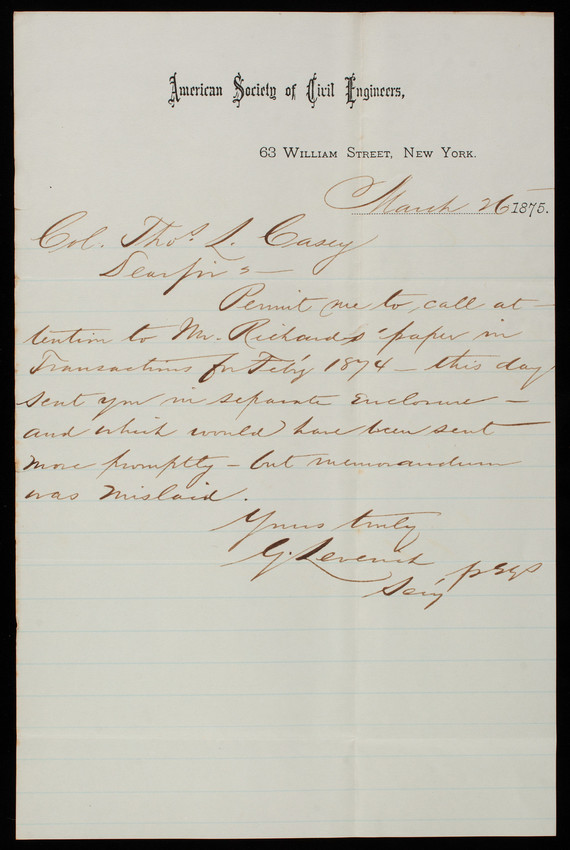 American Society of Civil Engineers,
63 William Street, New York.
March 26 1875.
Col. Thos. L. Casey
Dear Sir :—
Permit me to call at-
tention to Mr. Richards' paper in
Transactions for Feb'y 1874 — this day
sent you in separate enclosure —
and which would have been sent
more promptly — but memorandum
was mislaid.
Yours truly
G. Leverich
Sec'y